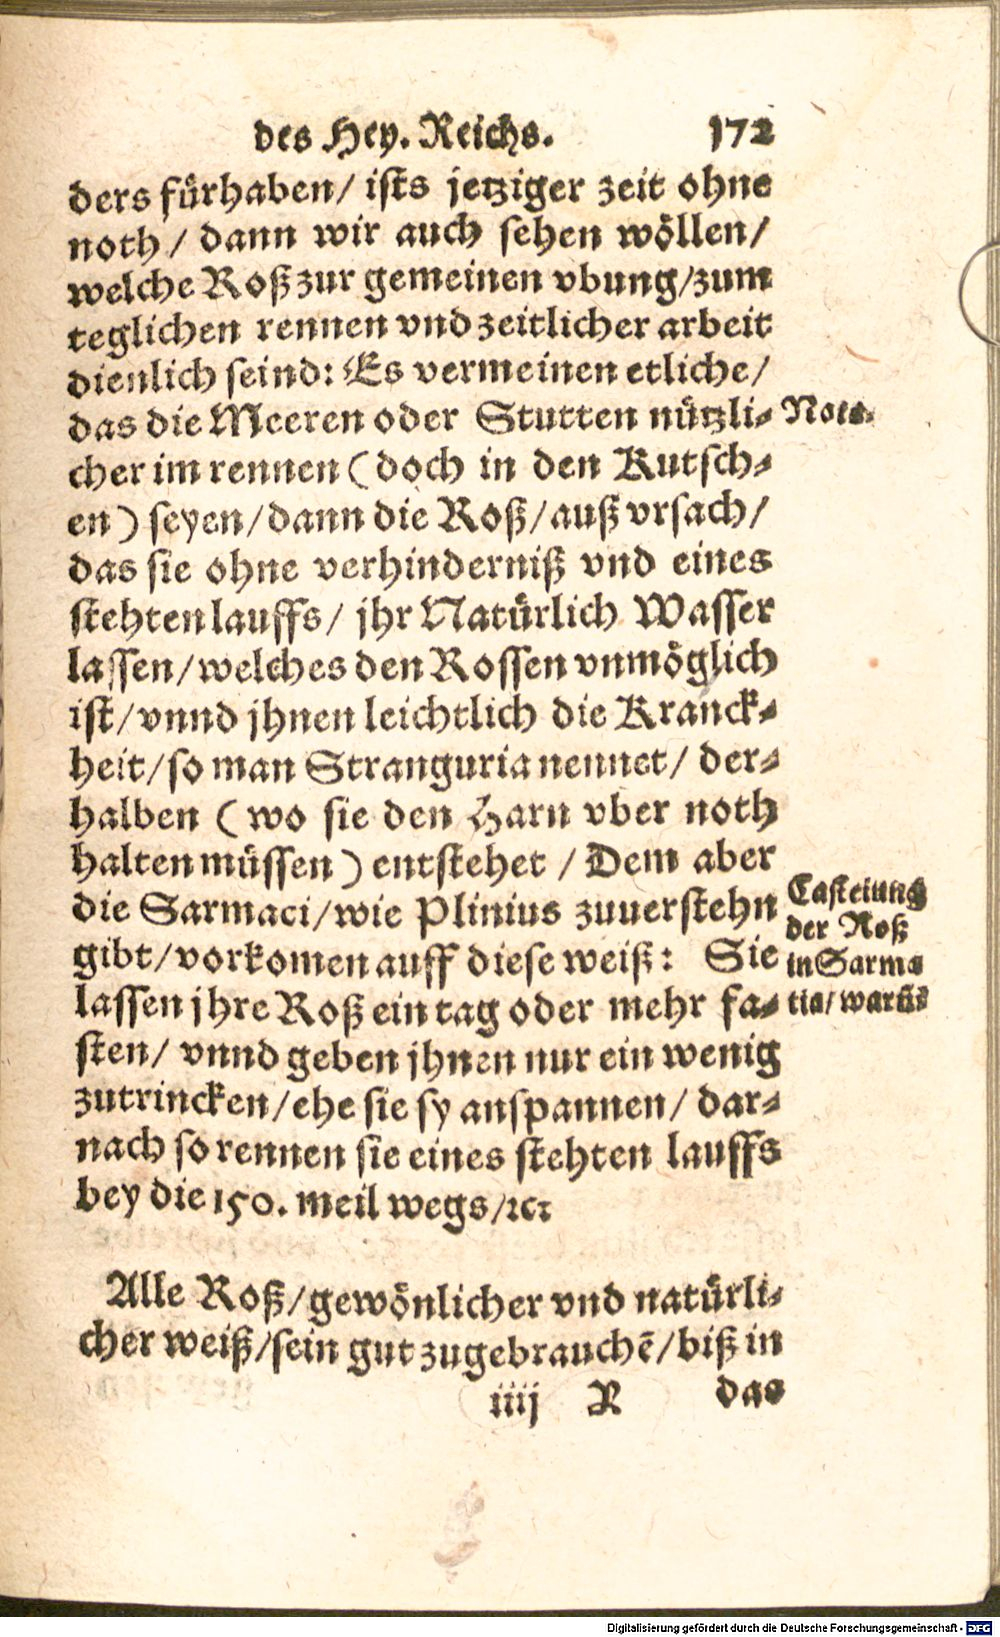 des Hey. Reichs. 172
ders fürhaben/ ists jetziger zeit ohne
noth/ dann wir auch sehen wöllen/
welche Roß zur gemeinen vbung/zum
teglichen rennen vnd zeitlicher arbeit
dienlich seind: Es vermeinen etliche/
das die Meeren oder Stutten nützli-
Nota.
cher im rennen (doch in den Kutsch-
en) seyen/dann die Roß/auß vrsach/
das sie ohne verhinderniß vnd eines
stehten lauffs/ jhr Natürlich Wasser
lassen/welches den Rossen vnmöglich
ist/vnnd jhnen leichtlich die Kranck-
heit/so man Stranguria nennet/ der-
halben (wo sie den Harn vber noth
halten müssen) entstehet / Dem aber
die Sarmaci/wie Plinius zuuerstehn
gibt/vorkomen auff diese weiß: Sie
lassen jhre Roß ein tag oder mehr fa-
Casteiung
der Roß
in Sarma
tia/warūb
sten/ vnnd geben jhnen nur ein wenig
zutrincken/ehe sie sy anspannen/ dar-
nach so rennen sie eines stehten lauffs
bey die 150. meil wegs/ꝛcꝛ
Alle Roß/gewönlicher vnd natürli-
cher weiß/sein gut zugebrauchē/biß in
iiij R das
Digitalisierung gefördert durch die Deutsche Forschungsgemeinschaft - DFG